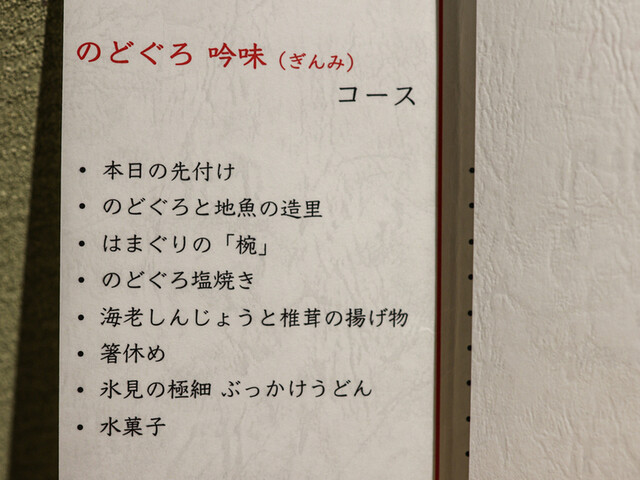 のどぐろ 吟味（ぎんみ）
コース
・ 本日の先付け
・ のどぐろと地魚の造里
・ はまぐりの「椀」
・ のどぐろ塩焼き
・ 海老しんじょうと椎茸の揚げ物
・ 箸休め
・ 氷見の極細 ぶっかけうどん
・ 水菓子